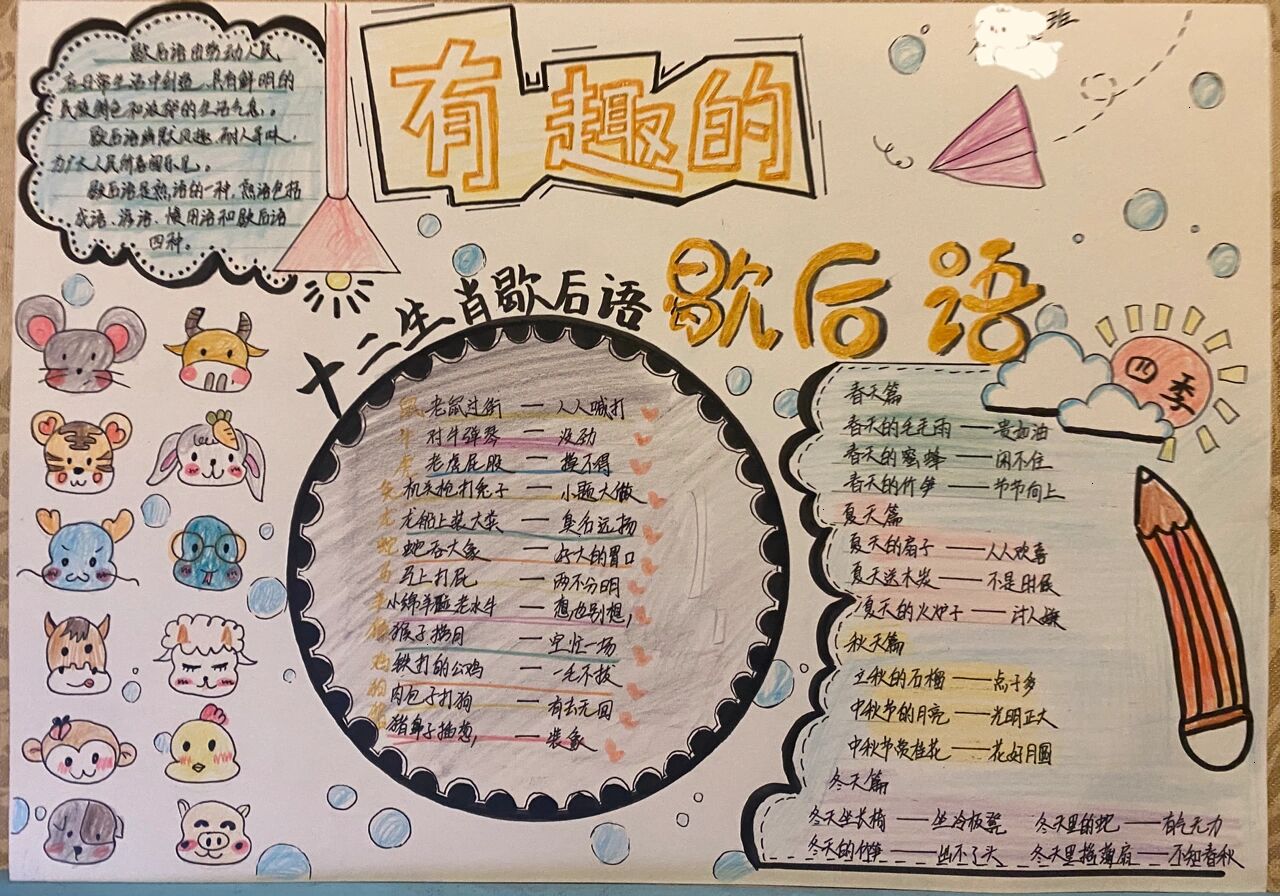 班
有趣的
歇后语
歇后语由劳动人民
在日常生活中创造,具有鲜明的
民族特色和浓郁的生活气息。
歇后语幽默风趣,耐人寻味,
为广大人民所喜闻乐见。
歇后语是熟语的一种,熟语包括
成语、谚语、惯用语和歇后语
四种。
十二生肖歇后语
鼠 老鼠过街 — 人人喊打
牛 对牛弹琴 — 没劲
虎 老虎屁股 — 摸不得
兔 机关枪打兔子 — 小题大做
龙 龙船上装大粪 — 臭名远扬
蛇 蛇吞大象 — 好大的胃口
马上打屁 — 两不分明
羊 小绵羊碰老水牛 — 想也别想,
猴 猴子捞月 — 空忙一场
鸡 铁打的公鸡 — 一毛不拔
狗 肉包子打狗 — 有去无回
猪 猪鼻子插葱, — 装象
四季
春天篇
春天的毛毛雨 — 贵如油
春天的蜜蜂 — 闲不住
春天的竹笋 — 节节向上
夏天篇
夏天的扇子 — 人人欢喜
夏天送木炭 — 不是时候
夏天的火炉子 — 讨人嫌
秋天篇
立秋的石榴 — 点子多
中秋节的月亮 — 光明正大
中秋节赏桂花 — 花好月圆
冬天篇
冬天坐长椅 — 坐冷板凳 冬天里的蛇 — 有气无力
冬天的竹笋 — 出不了头 冬天里摇蒲扇 — 不知春秋